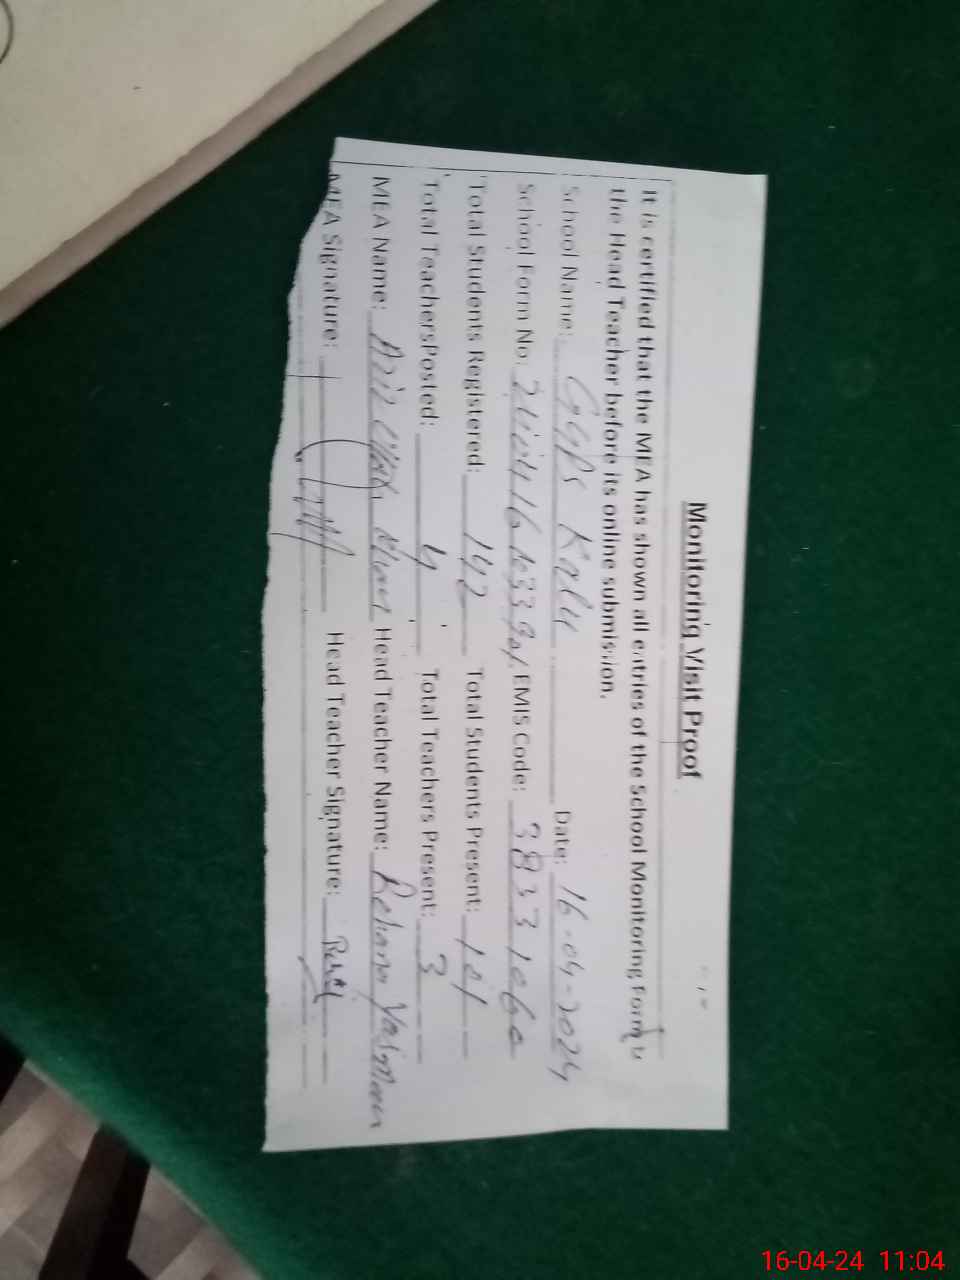 Monitoring Visit Proof
It is certified that the MEA has shown all entries of the School Monitoring Form is
the Head Teacher before its online submission.
School Name: GGPS Kalu Date: 16-04-2024
School Form No: EMIS Code: 38331060
Total Students Registered: 142 Total Students Present: 101
Total TeachersPosted: 4 Total Teachers Present: 3
MEA Name: Head Teacher Name: Rehana Yasmeen
MEA Signature: Head Teacher Signature:
16-04-24 11:04